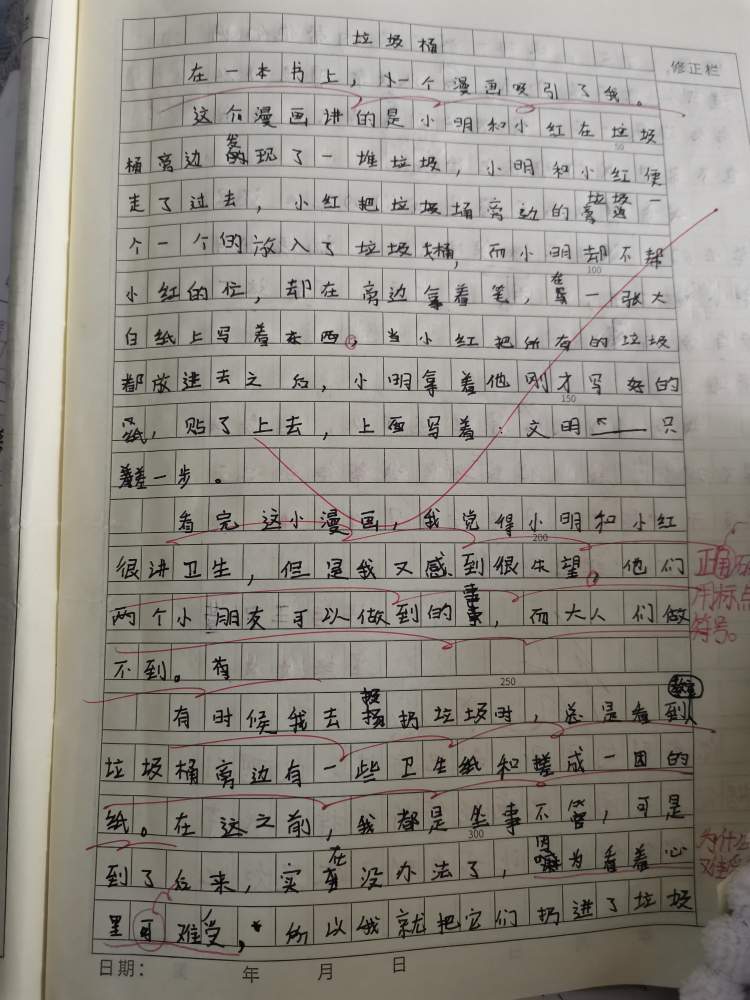 垃圾桶
修正栏
在一本书上，小一个漫画吸引了我。
这个漫画讲的是小明和小红在垃圾
50
桶旁边发现了一堆垃圾，小明和小红便
走了过去，小红把垃圾桶旁边的垃圾一
个一个的放入了垃圾桶，而小明却不帮
100
小红的忙，却在旁边拿着笔，在一张大
白纸上写着东西。当小红把所有的垃圾
都放进去之后，小明拿着他刚才写好的
150
纸，贴了上去，上面写着：文明 只
差一步。
看完这小漫画，我觉得小明和小红
200
很讲卫生，但是我又感到很失望。他们
正确
用标点
符号。
两个小朋友可以做到的事，而大人们做
不到。
250
有时候我去扔垃圾时，总是看到
垃圾桶旁边有一些卫生纸和搓成一团的
纸。在这之前，我都是坐事不管，可是
300
到了后来，实在没办法了，因为看着心
为什么
里可难受，所以我就把它们扔进了垃圾
日期： 年 月 日